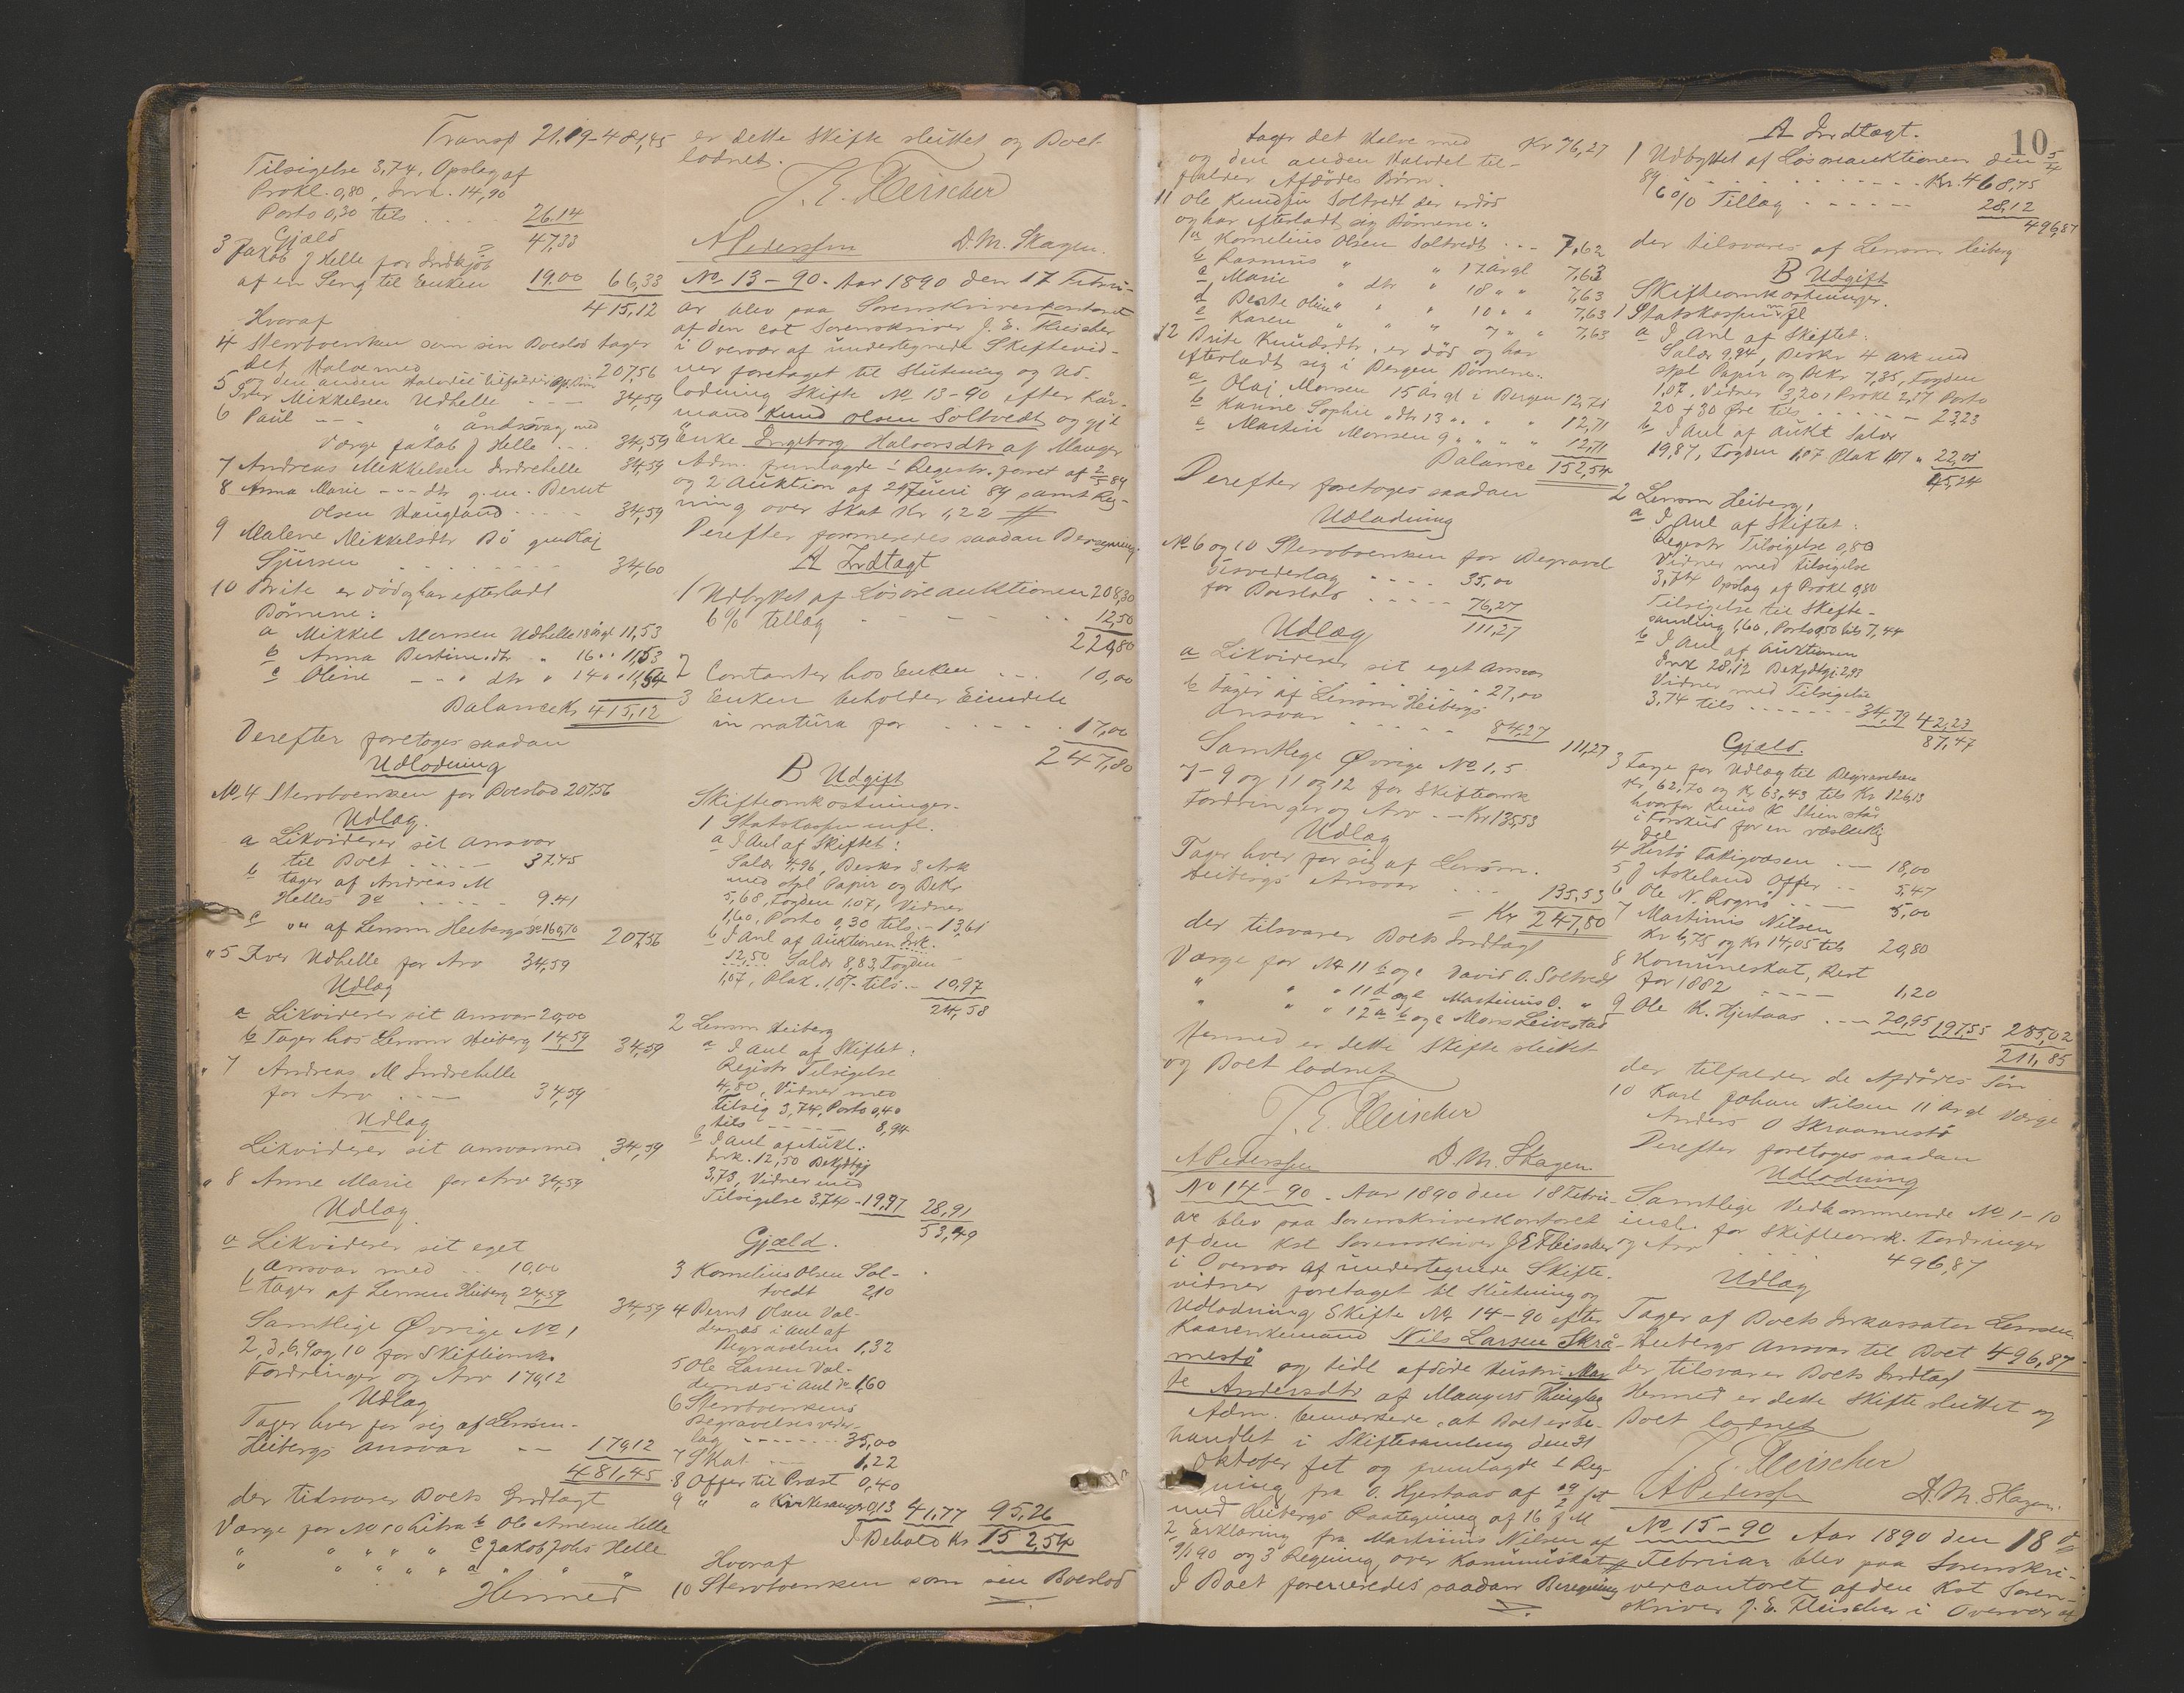 Transp 21.19 - 481,45
Tilsigelse 3,74, Opslag af
Prokl. 0,80, Ink. 14,90
Porto 0,30 tils 26.14
Gjæld 47,33
3 Jakob J Helle for Indkjöb
af en Seng til Enken 19.00 66,33
415,12
Hvoraf
4 Stervboenken som sin Boeslod tager
det Halve med 207,56
den anden Halvdel tilfalder
5 Iver Mikkelsen Udhelle 34,59
6 Paul - - " åndssvag med
Værge Jakob J Helle 34,59
7 Andreas Mikkelsen Indrehelle 34,59
8 Anna Marie - - dtr g.m. Bernt
Olsen Haugland 34,59
9 Malene Mikkelsdtr Bö gm Haj
Sjursen 34,60
10 Brite er död og har efterladt
Börnene:
a Mikkel Monsen Udhelle 18 år gl 11,53
b Anna Bertine dtr " 16 " " 11,53
c Oline - " dtr " 14 " " 11,54
Balance Kr 415,12
Derefter foretoges saadan
Udlodning
No 4 Stervboenken for Boeslod 207,56
Udlæg.
a Likviderer sit Ansvar
til Boet 37.45
b tager af Andreas M
Helles Do 9.41
c " " af Lensm Heibergs Do 160,70 207,56
" 5 Iver Udhelle for Arv 34,59
Udlæg
a Likviderer sit Ansvar 20,00
b Tager hos Lensm Heiberg 14,59 34,59
" 7 Andreas M Indrehelle
for Arv 34,59
Udlæg
Likviderer sit ansvar med 34,59
" 8 Anne Marie for Arv 34,59
Udlæg
a Likviderer sit eget
Ansvar med 10,00
b tager af Lensm Heiberg 24,59 34,59
Samtlige Övrige No 1
2, 3, 6, 9 og 10 for Skifteomk.
Fordringer og Arv 170,12
Udlæg
Tager hver for sig af Lensm.
Heibergs Ansvar 170,12
481,45
der tilsvarer Boets Indtægt
Værge for No 10 Litra b Ole Arnesen Helle
" " " " " c Jakob Jobs Helle
" " " " " a " " "
Hermed
er dette Skifte sluttet og Boet
lodnet.
J. E. Fleischer
A Pederssen D. M. Skagen.
No 13 - 90. Aar 1890 den 17 Febru-
ar blev paa Sorenskriverkontoret
af den cst Sorenskriver J. E. Fleischer
i Overvær af undertegnede Skiftevid-
ner foretaget til Slutning og Ud-
lodning Skifte No 13-90 efter Kår-
mand Knud Olsen Soltvedt og gjl
Enke Ingeborg Halvorsdtr af Manger
Adm. fremlagde 1 Registr. forret. af 2/5 89
og 2 Auktion af 29 Juni 89 samt Reg-
ning over Skat Kr 1,22 #
Derefter formeredes saadan Beregning.
A Indtægt
1 Udbyttet af Lösöreauktionen 208,30
6% tillæg 12,50
220,80
2 Contanter hos Enken 10,00
3 Enken beholder Eiendele
in natura for 17,00
247,80
B Udgift
Skifteomkostninger.
1 Statskassen mfl.
a I Anl af Skiftet:
Salær 4,96, Beskr 3 Ark
med stpl Papir og Bekr
5,68, Fogden 1,07, Vidner
1,60, Porto 0,30 tils - 13,61
b I Anl af Auktionen Ink.
12,50 Salær 8,83, Fogden
1,07, Plak. 1,07 tils - 10,97
24,58
2 Lensm Heiberg
a I Anl af Skiftet:
Registr Tilsigelse
4,80, Vidner med
Tilsig 3,74, Porto 0,40
tils 8,94
b I Anl af Aukt:
Ink. 12,50 Bekjdtgj
3,73, Vidner med
Tilsigelse 3.74 - 19,97 28,91
53,49
Gjæld.
3 Kornelius Olsen Sol-
tvedt 2,10
4 Bernt Olsen Val-
dernæs i Anl af
Begravelsen 1,32
5 Ole Larsen Val-
dernæs i Anl Do 1,60
6 Stervboenkens
Begravelsesveder-
lag 35,00
7 Skat 1,22
8 Offer til Præst 0,40
9 " " Kirkesanger 0,13 41,77 95,26
I Behold Kr 152,54
Hvoraf
10 Stervboenken som sin Boeslod
tager det Halve med Kr 76,27
og den anden Halvdel til-
falder Afdödes Börn.
11 Ole Knudsen Soltvedt der er död
og har efterladt sig Börnene:
a Kornelius Olsen Soltvedt 7,62
b Rasmus " " 17 år gl 7,63
c Marie " dtr " 18 " " 7,63
d Berte Oline " " " 10 " " 7,63
e Karen " " " 7 " " 7,63
12 Brite Knudsdtr, er död og har
efterladt sig i Bergen Börnene:
a Olaj Monsen 15 År gl i Bergen 12,71
b Karine Sophie " dtr 13 " " " 12,71
c Martin Monsen 9 " " " 12,71
Balance 152,54
Derefter foretoges saadan
Udlodning
No 6 og 10 Stervboenken for Begravel
sesvederlag 35,00
for Boeslod 76,27
111,27
Udlæg
a Likviderer sit eget Ansvar
27,00
b Tager af Lensm Heibergs
Ansvar 84,27 111,27
Samtlige Övrige No 1, 5
7-9 og 11 og 12 for Skifteomk
Fordringer og Arv - Kr 135,53
Udlæg
Tager hver for sig af Lensm.
Heibergs Ansvar 135,53
= Kr 247,80
der tilsvarer Boets Indtægt
Værge for No 11 b og c David O. Soltvedt
" " " 11 d og e Martinus O. "
" " " 12 a b og c Mons Leivestad
Hermed er dette Skifte sluttet
og Boet lodnet
J. E. Fleischer
A Pederssen D. M. Skagen.
No 14 - 90. Aar 1890 den 18 Febru-
ar blev paa Sorenskriverkontoret
af den Kst Sorenskriver J E Fleischer
i Overvær af undertegnede Skifte-
vidner foretaget til Slutning og
Udlodning Skifte No 14-90 efter
Kaarenkemand Nils Larsen Skrå-
mestö og tidl afdöde Hustru Mar
te Andersdtr af Mangers Thinglag
Adm. bemærkede, at Boet er be-
handlet i Skiftesamling den 31
Oktober fet og fremlagde 1 Reg-
ning fra O. Hjertaas af 19/2 fet
med Heibergs Paategning af 16 J M
2, Erklæring fra Martinus Nilsen af
9/1 90 og 3 Regning over Kommuneskat #
I Boet formeredes saadan Beregning
10
A Indtægt.
1 Udbyttet af Lösöreauktionen den 5/4
89 Kr. 468,75
6% Tillæg 28,12
496,87
der tilsvares af Lensm Heiberg
B Udgift
Skifteomkostninger.
1 Statskassen mfl
a I Anl af Skiftet:
Salær 9,94, Beskr 4 Ark med
stpl Papir og Bekr 7,35, Fogden
1,07, Vidner 3,20, Prokl 2,17 Porto
20 + 30 Öre tils 23,23
b I Anl af Aukt Salær
19,87, Fogden 1,07 Plak 1,07 " 22,01
45,24
2 Lensm Heiberg,
a I Anl af Skiftet:
Registr Tilsigelse 0,80
Vidner med Tilsigelse
3,74 Opslag af Prokl 0,80
Tilsigelse til Skifte-
samling 1,60, Porto 0,50 tils 7,44
b I Anl af Auktionen
Ink 28,12 Bekjdtgj. 2,93
Vidner med Tilsigelse
3,74 tils 34,79 42,23
87,47
Gjæld.
3 Farge for Udlæg til Begravelsen
Kr 62,70 og Kr 63,43 tils Kr 126,13
hvorfor Knud K Stien står
i Forskud for en væsentlig
Del
4 Herlö Fattigvæsen 18,00
5 J Askeland Offer 5,47
6 Ole N. Rognö 5,00
7 Martinus Nilsen
Kr 6,75 og Kr 14,05 tils 20,80
8 Kommuneskat, Rest
for 1882 1,20
9 Ole K. Hjertaas 20,95 197,55 285,02
211,85
der tilfalder de Afdödes Sön
10 Karl Johan Nilsen 11 År gl Værge
Anders O Skraamestö
Derefter foretoges saadan
Udlodning
Samtlige Vedkommende No 1-10
incl. for Skifteomk. Fordringer
og Arv 496,87
Udlæg
Tager af Boets Inkassator Lensm.
Heibergs Ansvar til Boet 496,87
der tilsvarer Boets Indtægt
Hermed er dette Skifte sluttet og
Boet lodnet
J. E. Fleischer
A Pederssen D. M. Skagen.
No 15 - 90 Aar 1890 den 18 de
Februar blev paa Sorenskri-
vercontoret af den Kst Soren-
skriver J. E. Fleischer i Overvær af